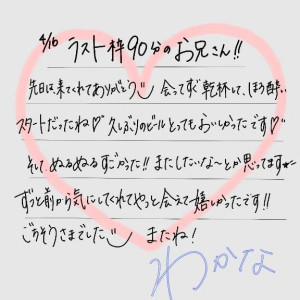 4/10 ラスト枠90分のお兄さん!!
先日は来てくれてありがとう 会ってすぐ乾杯して、ほろ酔い
スタートだったね♡ 久しぶりのビールとってもおいしかったです♡
そして、ぬるぬるすごかった!! またしたいな〜とか思ってます★
ずっと前から気にしてくれてやっと会えて嬉しかったです!!
ごちそうさまでした またね!
わかな